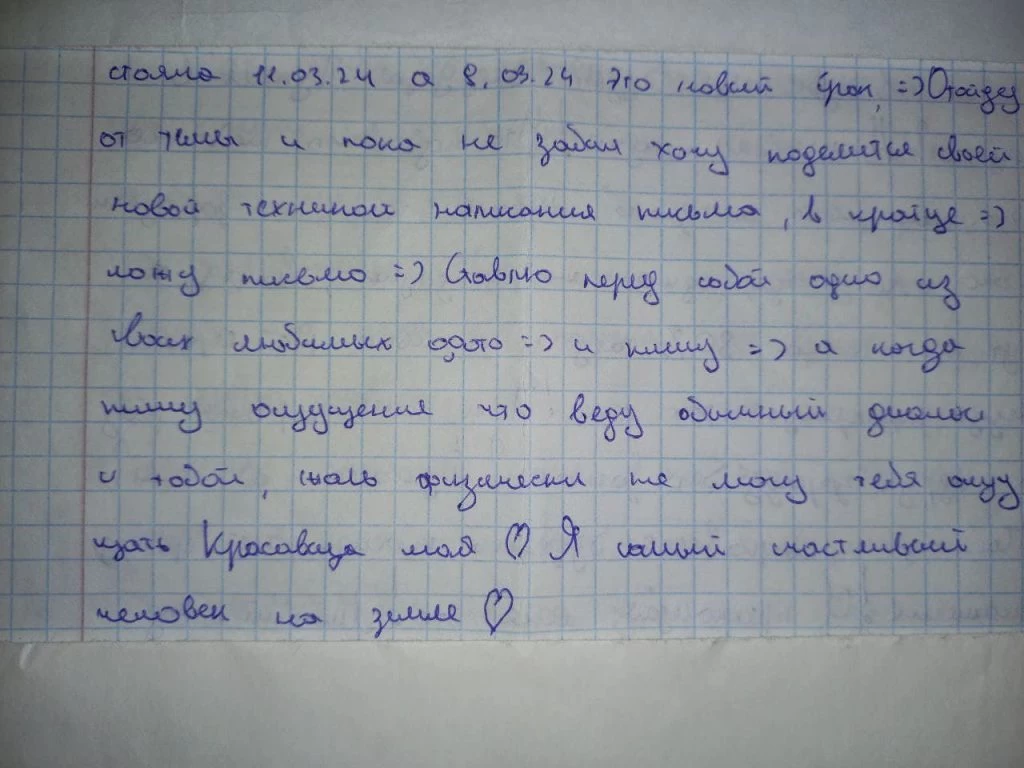 стояла 11.03.24 а 8.03.24 это новый срок, => Отойду
от темы и пока не забыл хочу поделится своей
новой техникой написания письма, в кратце =>
ложу письмо => Ставлю перед собой одно из
твоих любимых фото => и пишу => а когда
пишу ощущения что веду обычный диалог
с тобой, жаль физически не могу тебя ощу
щать Красавица моя ♡ Я самый счастливый
человек на земле ♡